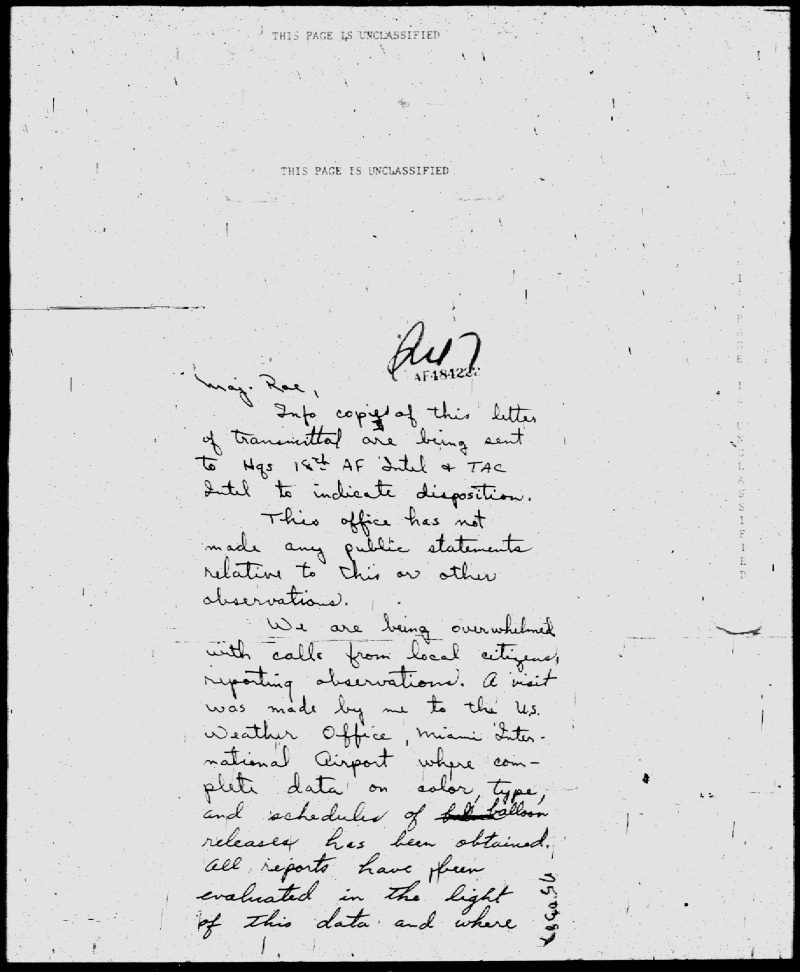 THIS PAGE IS UNCLASSIFIED
THIS PAGE IS UNCLASSIFIED
Maj. Rae,
Info copies of this letter
of transmittal are being sent
to Hqs 18th AF Intel & TAC
Intel to indicate disposition.
This office has not
made any public statements
relative to this or other
observations.
We are being overwhelmed
with calls from local citizens,
reporting observations. A visit
was made by me to the U.S.
Weather Office, Miami Inter-
national Airport where com-
plete data on color, type,
and schedules of balloon
releases has been obtained.
All reports have been
evaluated in the light
of this data and where